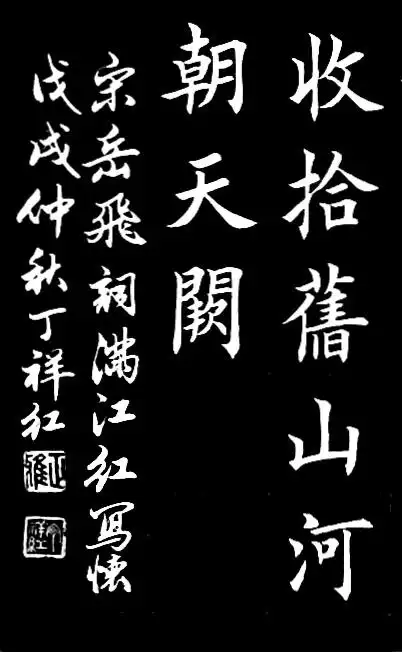 收拾舊山河
朝天闕
宋岳飛詞滿江紅寫懷
戊戌仲秋丁祥红